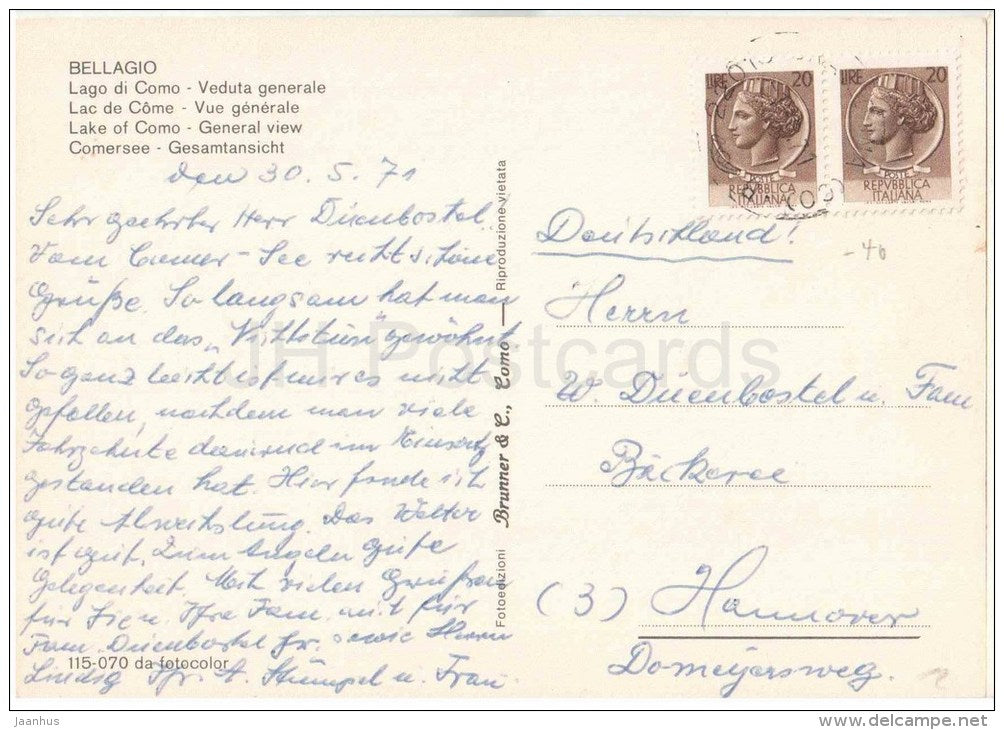 BELLAGIO
Lago di Como - Veduta generale
Lac de Côme - Vue générale
Lake of Como - General view
Comersee - Gesamtansicht
den 30. 5. 71
Sehr geehrter Herr Düenbostel!
Vom Comer-See recht schöne
Grüße. So langsam hat man
sich an das „Nichtstun" gewöhnt.
So ganz leicht ist mir es nicht
gefallen, nachdem man viele
Jahrzehnte dauernd im Einsatz
gestanden hat. Hier finde ich
gute Abwechslung. Das Wetter
ist gut, zum Angeln gute
Gelegenheit. Mit vielen Grüßen
für Sie u. Ihre Fam. mit für
Fam. Düenbostel jr. sowie Herrn
Ihr A. Stümpel u. Frau
115-070 da fotocolor
Fotoedizioni Brunner & C., Como — Riproduzione vietata
LIRE 20
POSTE
REPVBBLICA
ITALIANA
LIRE 20
POSTE
REPVBBLICA
ITALIANA
(CO)
Deutschland!
-40
Herrn
W. Düenbostel u. Fam
Bäckerei
(3) Hannover
Domeyersweg
JH Postcards
jaanhus
www.delcampe.net